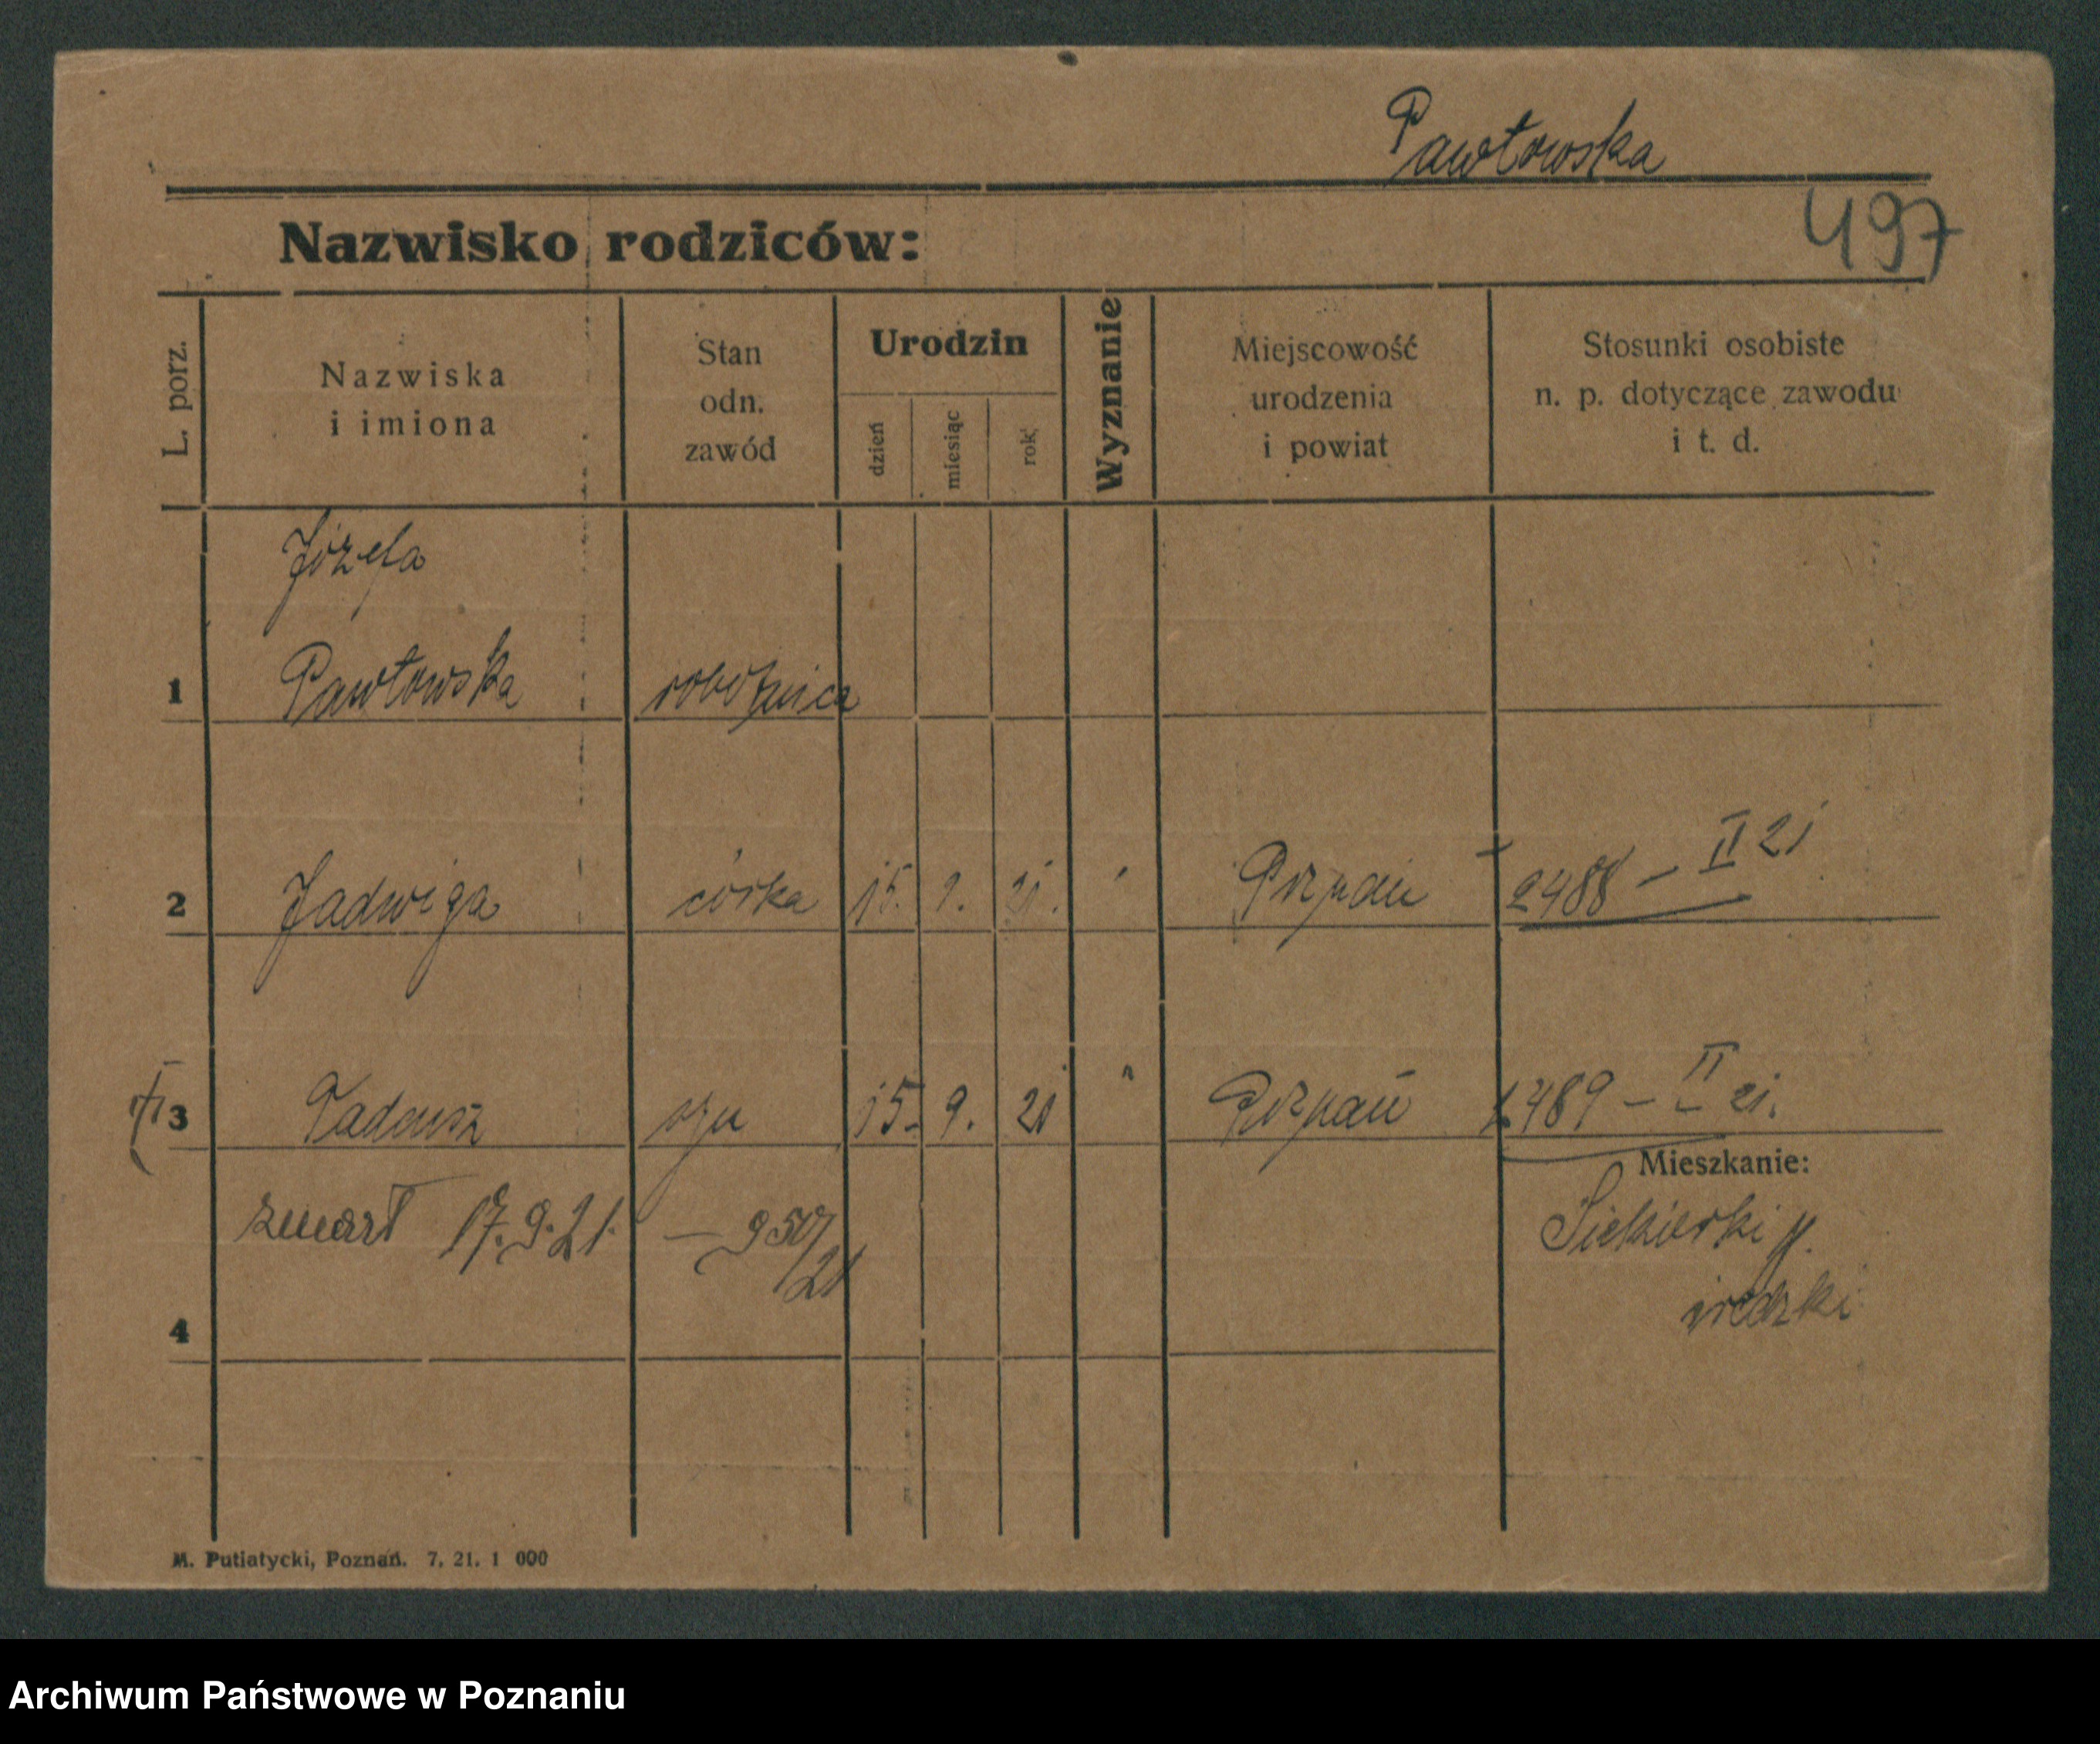 Pawłowska
497
Nazwisko rodziców:
L. porz.
Nazwiska
i imiona
Stan
odn.
zawód
Urodzin
dzień
miesiąc
rok
Wyznanie
Miejscowość
urodzenia
i powiat
Stosunki osobiste
n. p. dotyczące zawodu
i t. d.
Józefa
1 Pawłowska robotnica
2 Jadwiga córka 15. 9. 21. Poznań 2488 – II 21
3 Tadeusz syn 15. 9. 21 " Poznań 2489 – II 21.
Mieszkanie:
zmarł 17.9.21. – 950/21
Siekierki p.
średzki
4
M. Putiatycki, Poznań. 7. 21. 1 000
Archiwum Państwowe w Poznaniu